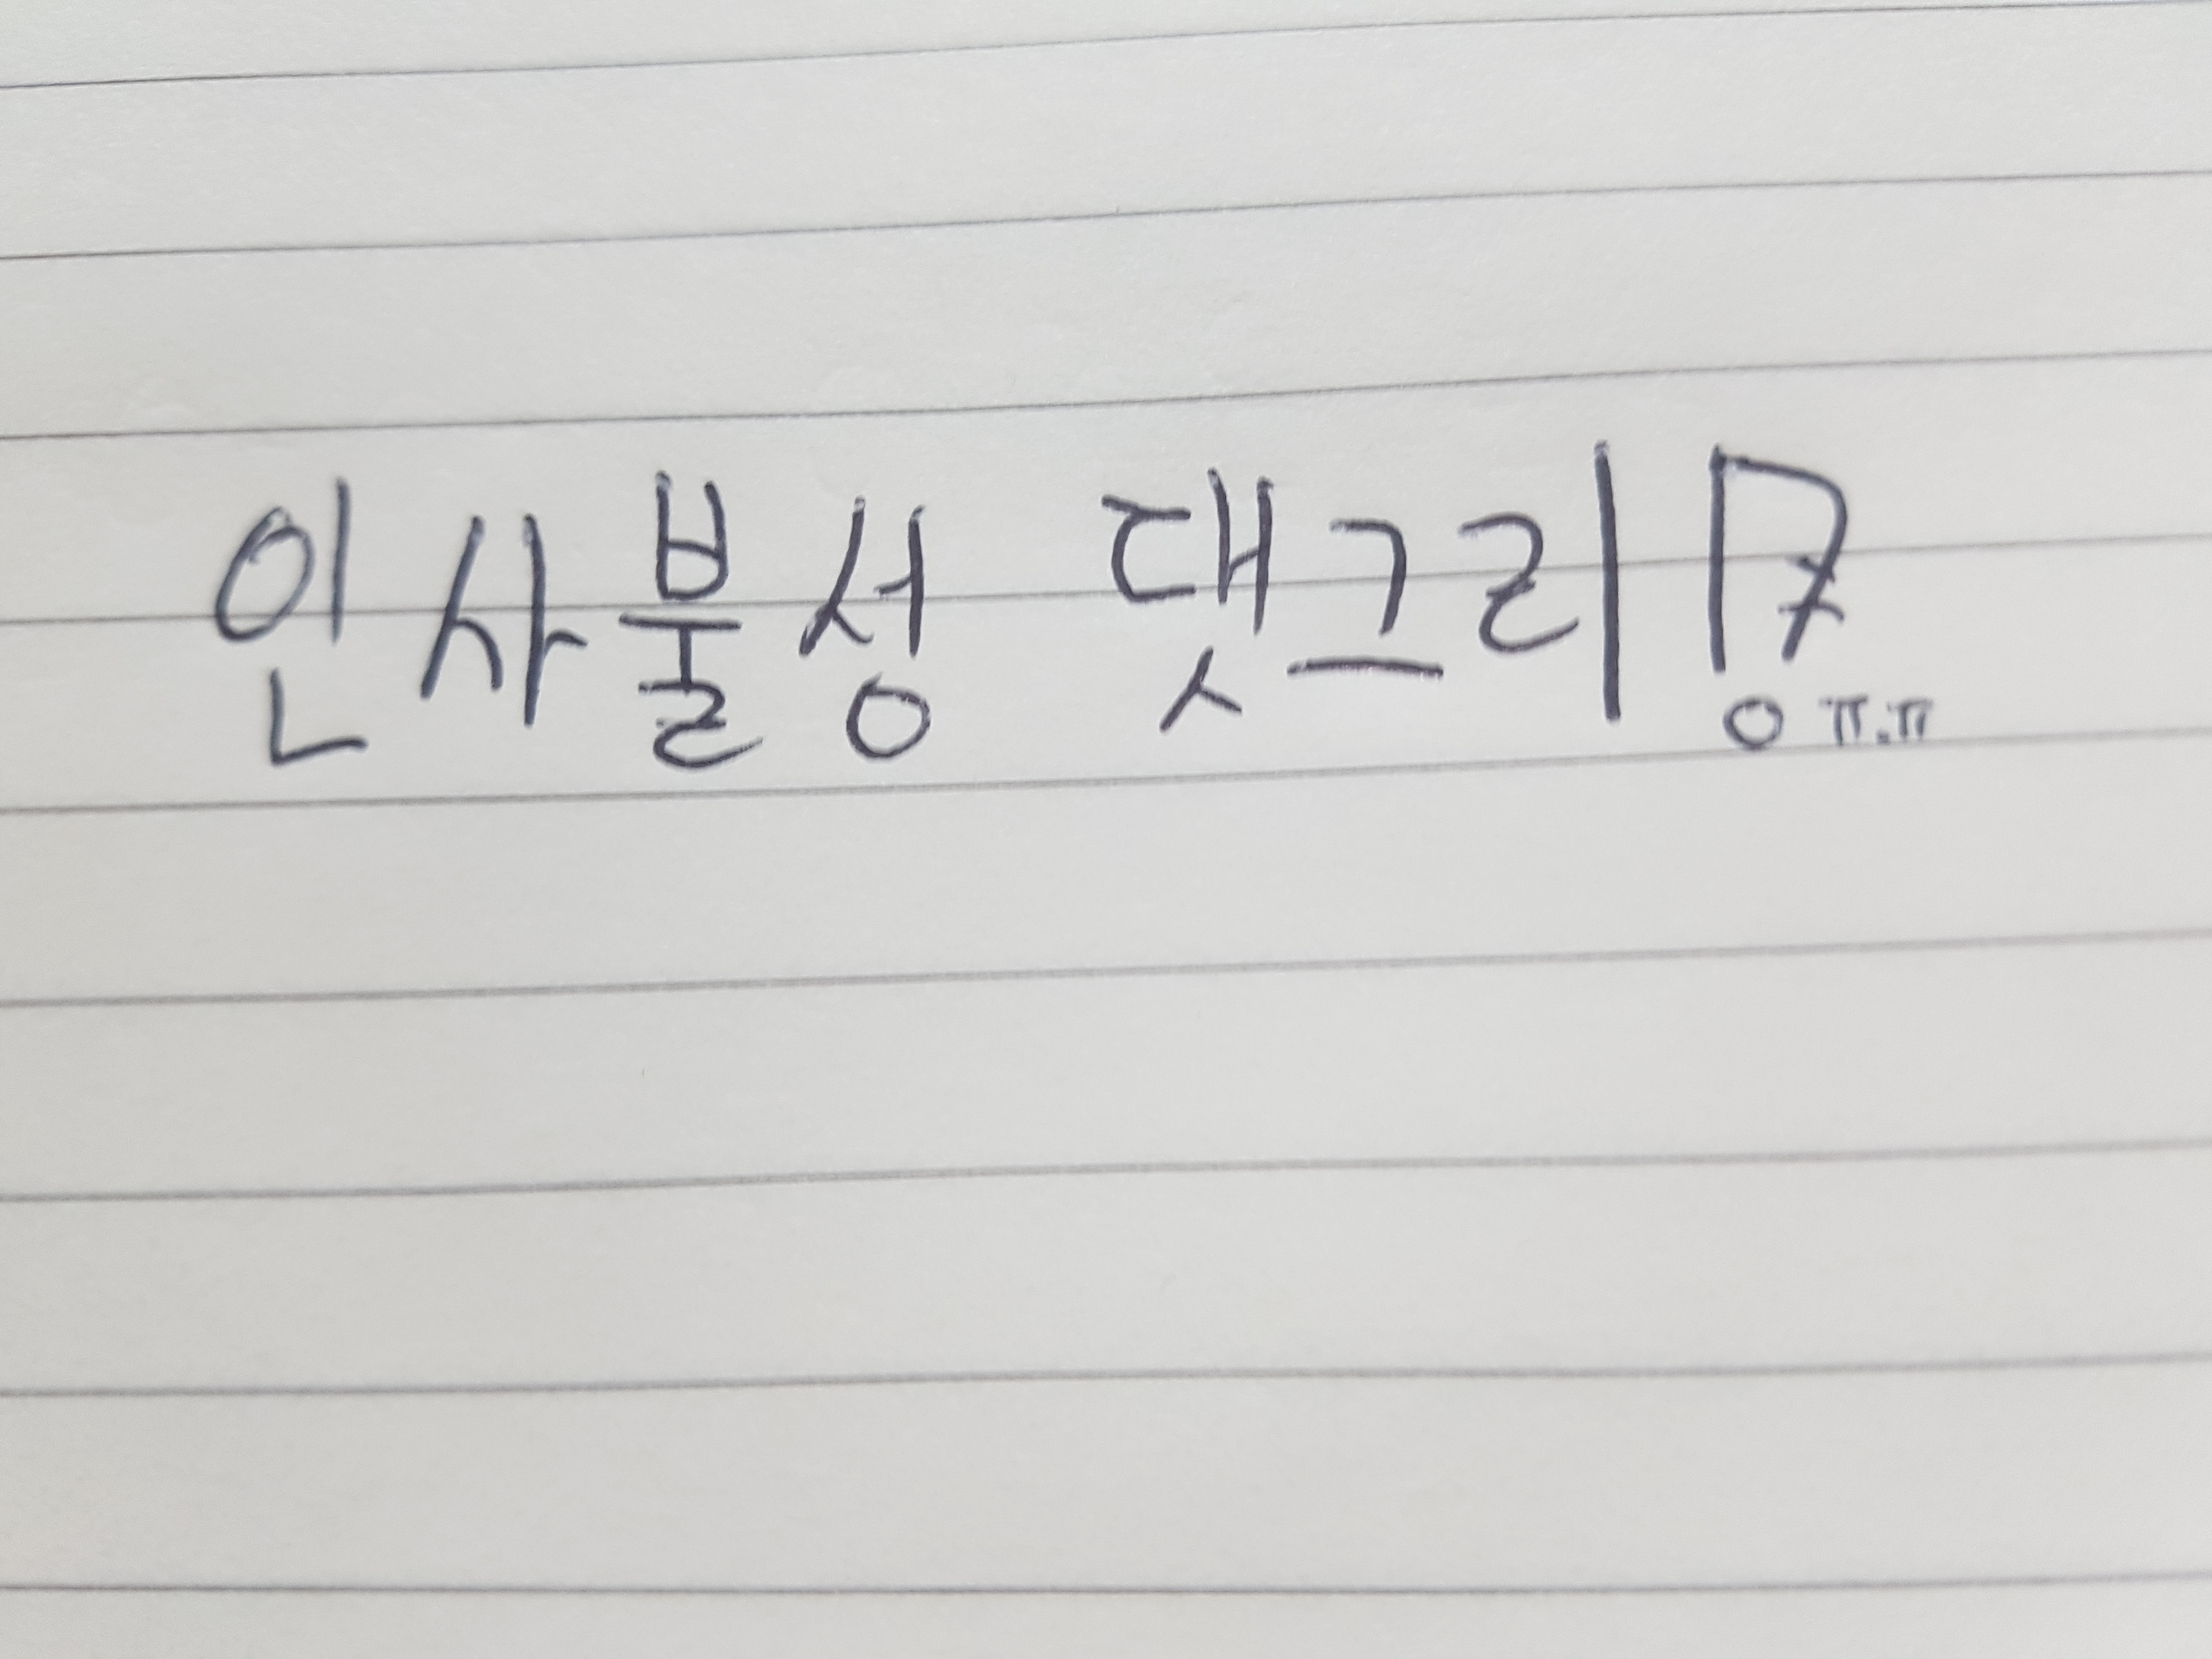 인사불성 댓그리 ㅠ.ㅠ